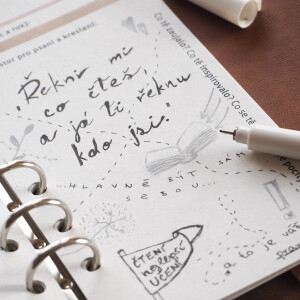 a rok):
stor pro psaní a kreslení:
Co tě zaujalo? Co tě inspirovalo? Co se tě
„Řekni mi
co čteš,
a já ti řeknu
kdo jsi.“
HLAVNĚ BÝT SÁM
SEBOU...
ČTENÍ
nejlepší
UČENÍ
a to je